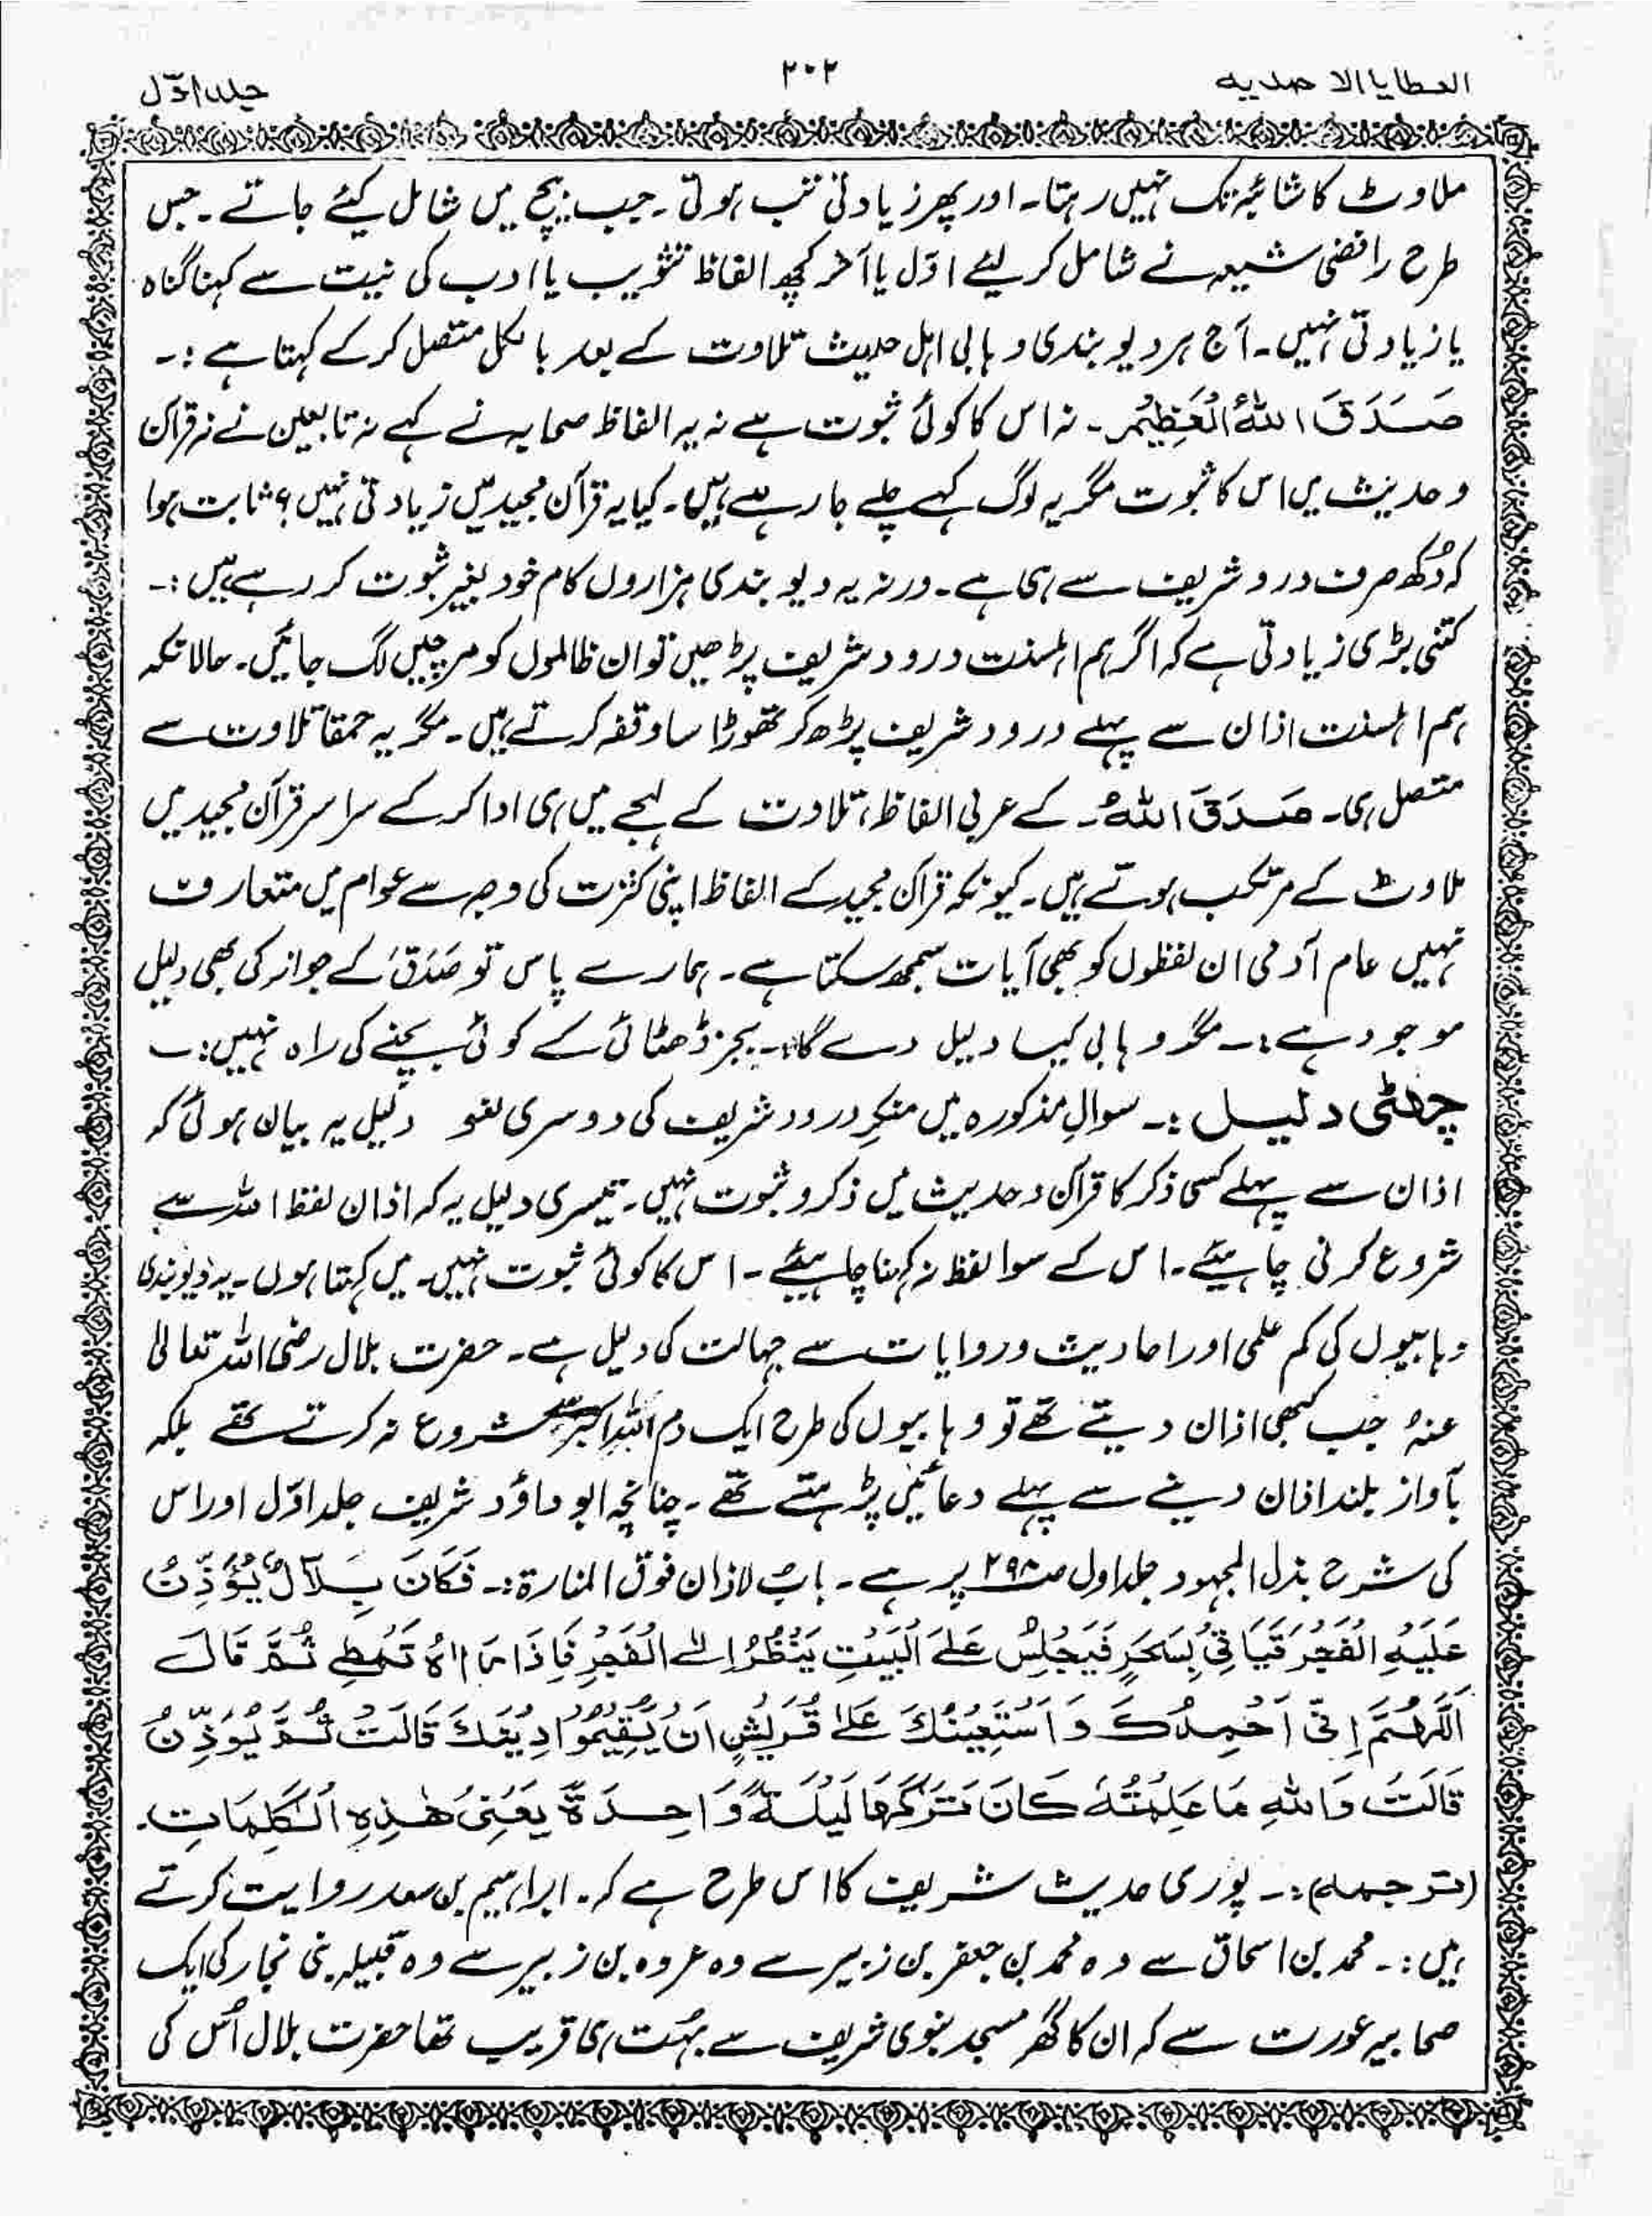 العطایا الاحمدیہ
۲۰۲
جلد اوّل
ملاوٹ کا شائبہ تک نہیں رہتا۔ اور پھر زیادتی تب ہوتی۔ جب بیچ میں شامل کیئے جاتے۔ جس
طرح رافضی شیعہ نے شامل کر لیئے اوّل یا آخر کچھ الفاظ تثویب یا ادب کی نیت سے کہنا گناہ
یا زیادتی نہیں۔ آج ہر دیوبندی وہابی اہل حدیث تلاوت کے بعد بالکل متصل کر کے کہتا ہے :۔
صَدَقَ اللهُ الْعَظِیْمُ۔ نہ اس کا کوئی ثبوت ہے نہ یہ الفاظ صحابہ نے کہے نہ تابعین نے نہ قرآن
و حدیث میں اس کا ثبوت مگر یہ لوگ کہے چلے جا رہے ہیں۔ کیا یہ قرآن مجید میں زیادتی نہیں؟ ثابت ہوا
کہ دُکھ صرف درود شریف سے ہی ہے۔ ورنہ یہ دیوبندی ہزاروں کام خود بغیر ثبوت کر رہے ہیں :۔
کتنی بڑی زیادتی ہے کہ اگر ہم اہلسنت درود شریف پڑھیں تو ان ظالموں کو مرچیں لگ جائیں۔ حالانکہ
ہم اہلسنت اذان سے پہلے درود شریف پڑھ کر تھوڑا سا وقفہ کرتے ہیں۔ مگر یہ حمقا تلاوت سے
متصل ہی۔ صَدَقَ اللهُ۔ کے عربی الفاظ، تلاوت کے لہجے میں ہی ادا کر کے سراسر قرآن مجید میں
ملاوٹ کے مرتکب ہوتے ہیں۔ کیونکہ قرآن مجید کے الفاظ اپنی کثرت کی وجہ سے عوام میں متعارف
نہیں عام آدمی ان لفظوں کو بھی آیات سمجھ سکتا ہے۔ ہمارے پاس تو صَدَقَ کے جواز کی بھی دلیل
موجود ہے :۔ مگر وہابی کیا دلیل دے گا :۔ بجز ڈھٹائی کے کوئی بچنے کی راہ نہیں :۔
چھٹی دلیل :۔ سوالِ مذکورہ میں منکرِ درود شریف کی دوسری لغو دلیل یہ بیان ہوئی کہ
اذان سے پہلے کسی ذکر کا قرآن و حدیث میں ذکر و ثبوت نہیں۔ تیسری دلیل یہ کہ اذان لفظ اللہ سے
شروع کرنی چاہیئے۔ اس کے سوا لفظ نہ کہنا چاہیئے۔ اس کا کوئی ثبوت نہیں۔ میں کہتا ہوں۔ یہ دیوبندی
وہابیوں کی کم علمی اور احادیث و روایات سے جہالت کی دلیل ہے۔ حضرت بلال رضی اللہ تعالیٰ
عنہُ جب کبھی اذان دیتے تھے تو وہابیوں کی طرح ایک دم اللہ اکبر سے شروع نہ کرتے تھے بلکہ
بآواز بلند اذان دینے سے پہلے دعائیں پڑھتے تھے۔ چنانچہ ابو داؤد شریف جلد اوّل اور اس
کی شرح بذل المجہود جلد اول ص ۲۹۸ پر ہے۔ بابُ لاذان فوق المنارۃ :۔ فَکَانَ بِلَالٌ یُؤَذِّنُ
عَلَیْہِ الْفَجْرَ فَیَاتِیْ بِسَحَرٍ فَیَجْلِسُ عَلَی الْبَیْتِ یَنْظُرُ اِلَی الْفَجْرِ فَاِذَا رَاٰہُ تَمَطّٰی ثُمَّ قَالَ
اَللّٰھُمَّ اِنِّیْ اَحْمِدُکَ وَاَسْتَعِیْنُکَ عَلٰی قُرَیْشٍ اَنْ یُّقِیْمُوْا دِیْنَکَ قَالَتْ ثُمَّ یُؤَذِّنُ
قَالَتْ وَاللهِ مَا عَلِمْتُہٗ کَانَ تَرَکَھَا لَیْلَۃً وَّاحِدَۃً یَعْنِیْ ھٰذِہِ الْکَلِمَاتِ۔
(ترجمہ) :۔ پوری حدیث شریف کا اس طرح ہے کہ۔ ابراہیم بن سعد روایت کرتے
ہیں :۔ محمد بن اسحاق سے وہ محمد بن جعفر بن زبیر سے وہ عروہ بن زبیر سے وہ قبیلہ بنی نجار کی ایک
صحابیہ عورت سے کہ ان کا گھر مسجد نبوی شریف سے بہُت ہی قریب تھا حضرت بلال اُس کی